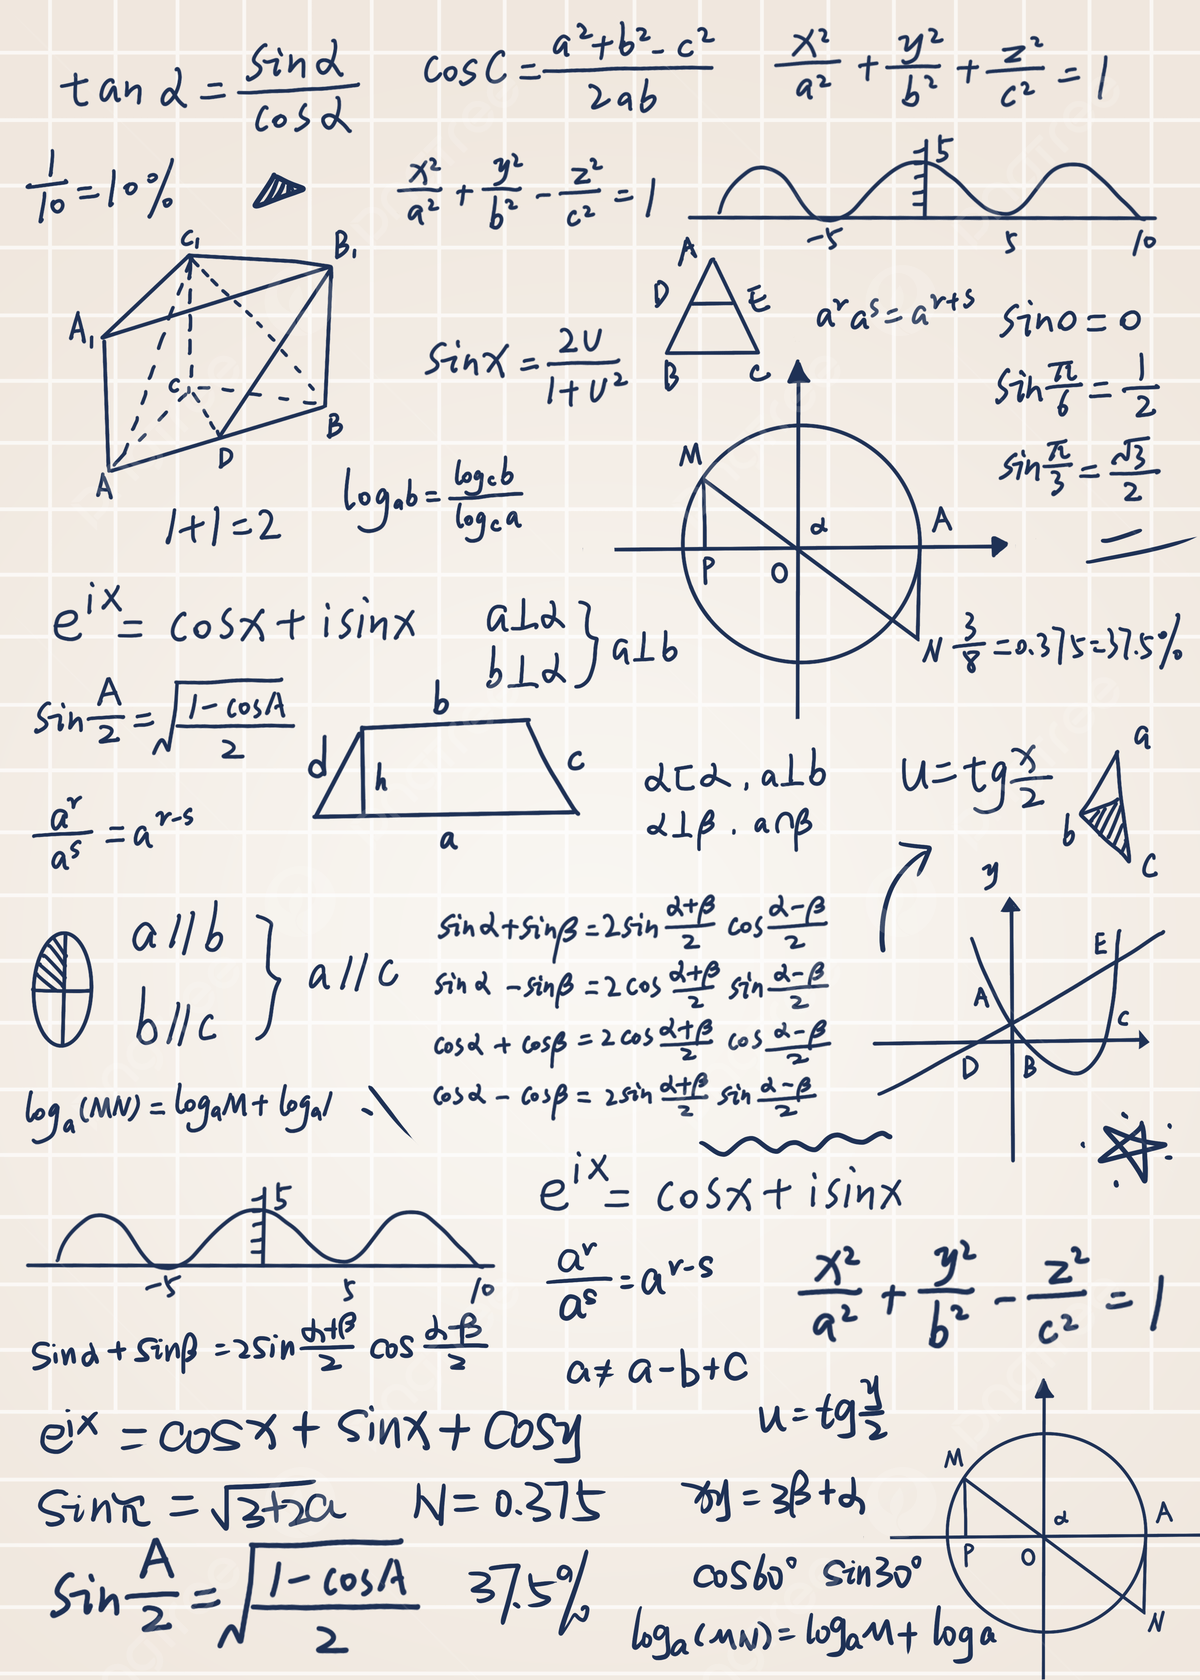 tan α = sinα / cosα
cosC = a²+b²-c² / 2ab
x²/a² + y²/b² + z²/c² = 1
1/10 = 10%
x²/a² + y²/b² - z²/c² = 1
5
-5 5 10
C₁ B₁
A₁
C
B
D
A
A
D E
B C
aʳaˢ = aʳ⁺ˢ
sin0 = 0
sinx = 2U / 1+U²
sin π/6 = 1/2
sin π/3 = √3/2
logₐb = log꜀b / log꜀a
1+1=2
M
α A
P O
N
e^ix = cosx + isinx
a⊥α
b⊥α } a⊥b
3/8 = 0.375 = 37.5%
sin A/2 = √(1-cosA / 2)
b
d h c
a
α⊏α . a⊥b
α⊥β . a∩β
u = tg x/2
a
b
C
aʳ/aˢ = aʳ⁻ˢ
a//b
b//c } a//c
sinα + sinβ = 2sin α+β/2 cos α-β/2
sinα - sinβ = 2cos α+β/2 sin α-β/2
cosα + cosβ = 2cos α+β/2 cos α-β/2
cosα - cosβ = 2sin α+β/2 sin α-β/2
y
E
A
C
D B
logₐ(MN) = logₐM + logₐ/
e^ix = cosx + isinx
5
-5 5 10
aʳ/aˢ = aʳ⁻ˢ
x²/a² + y²/b² - z²/c² = 1
sinα + sinβ = 2sin α+β/2 cos α-β/2
a ≠ a-b+C
u = tg y/2
e^ix = cosx + sinx + cosy
sinπ = √3+2a
N = 0.375
xy = 3β+α
M
α A
P O
N
sin A/2 = √(1-cosA / 2)
37.5%
cos60° sin30°
logₐ(MN) = logₐM + log a